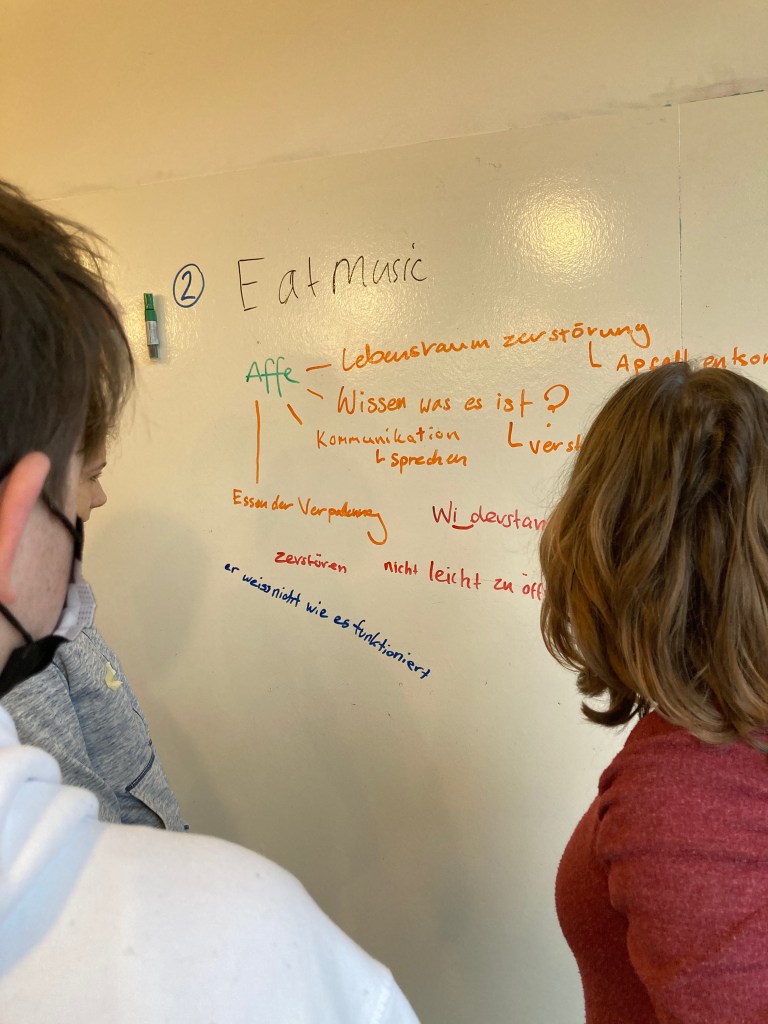 ② Eat Music
Affe
Lebensraum zerstörung
Wissen was es ist?
Kommunikation
sprechen
Essen der Verpackung
zerstören
nicht leicht zu
er weiss nicht wie es funktioniert